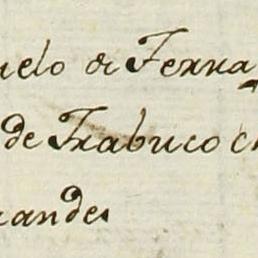 uelo de Ferra
de Trabuco c
randes